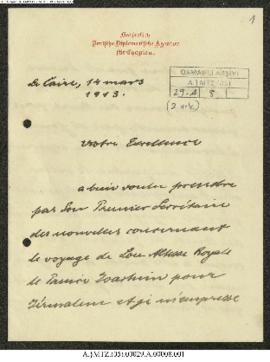 1
Kaiserlich
Deutsche Diplomatische Agentur
für Egypten.
Le Caire, 14 mars
1913.
29.A 8 1
Votre Excellence
a bien voulu prendre
par Son Premier Secrétaire
des nouvelles concernant
le voyage de Son Altesse Royale
le Prince Joachim pour
Jérusalem et je m'empresse
A.}MTZ.}051.00029.A.00008.001